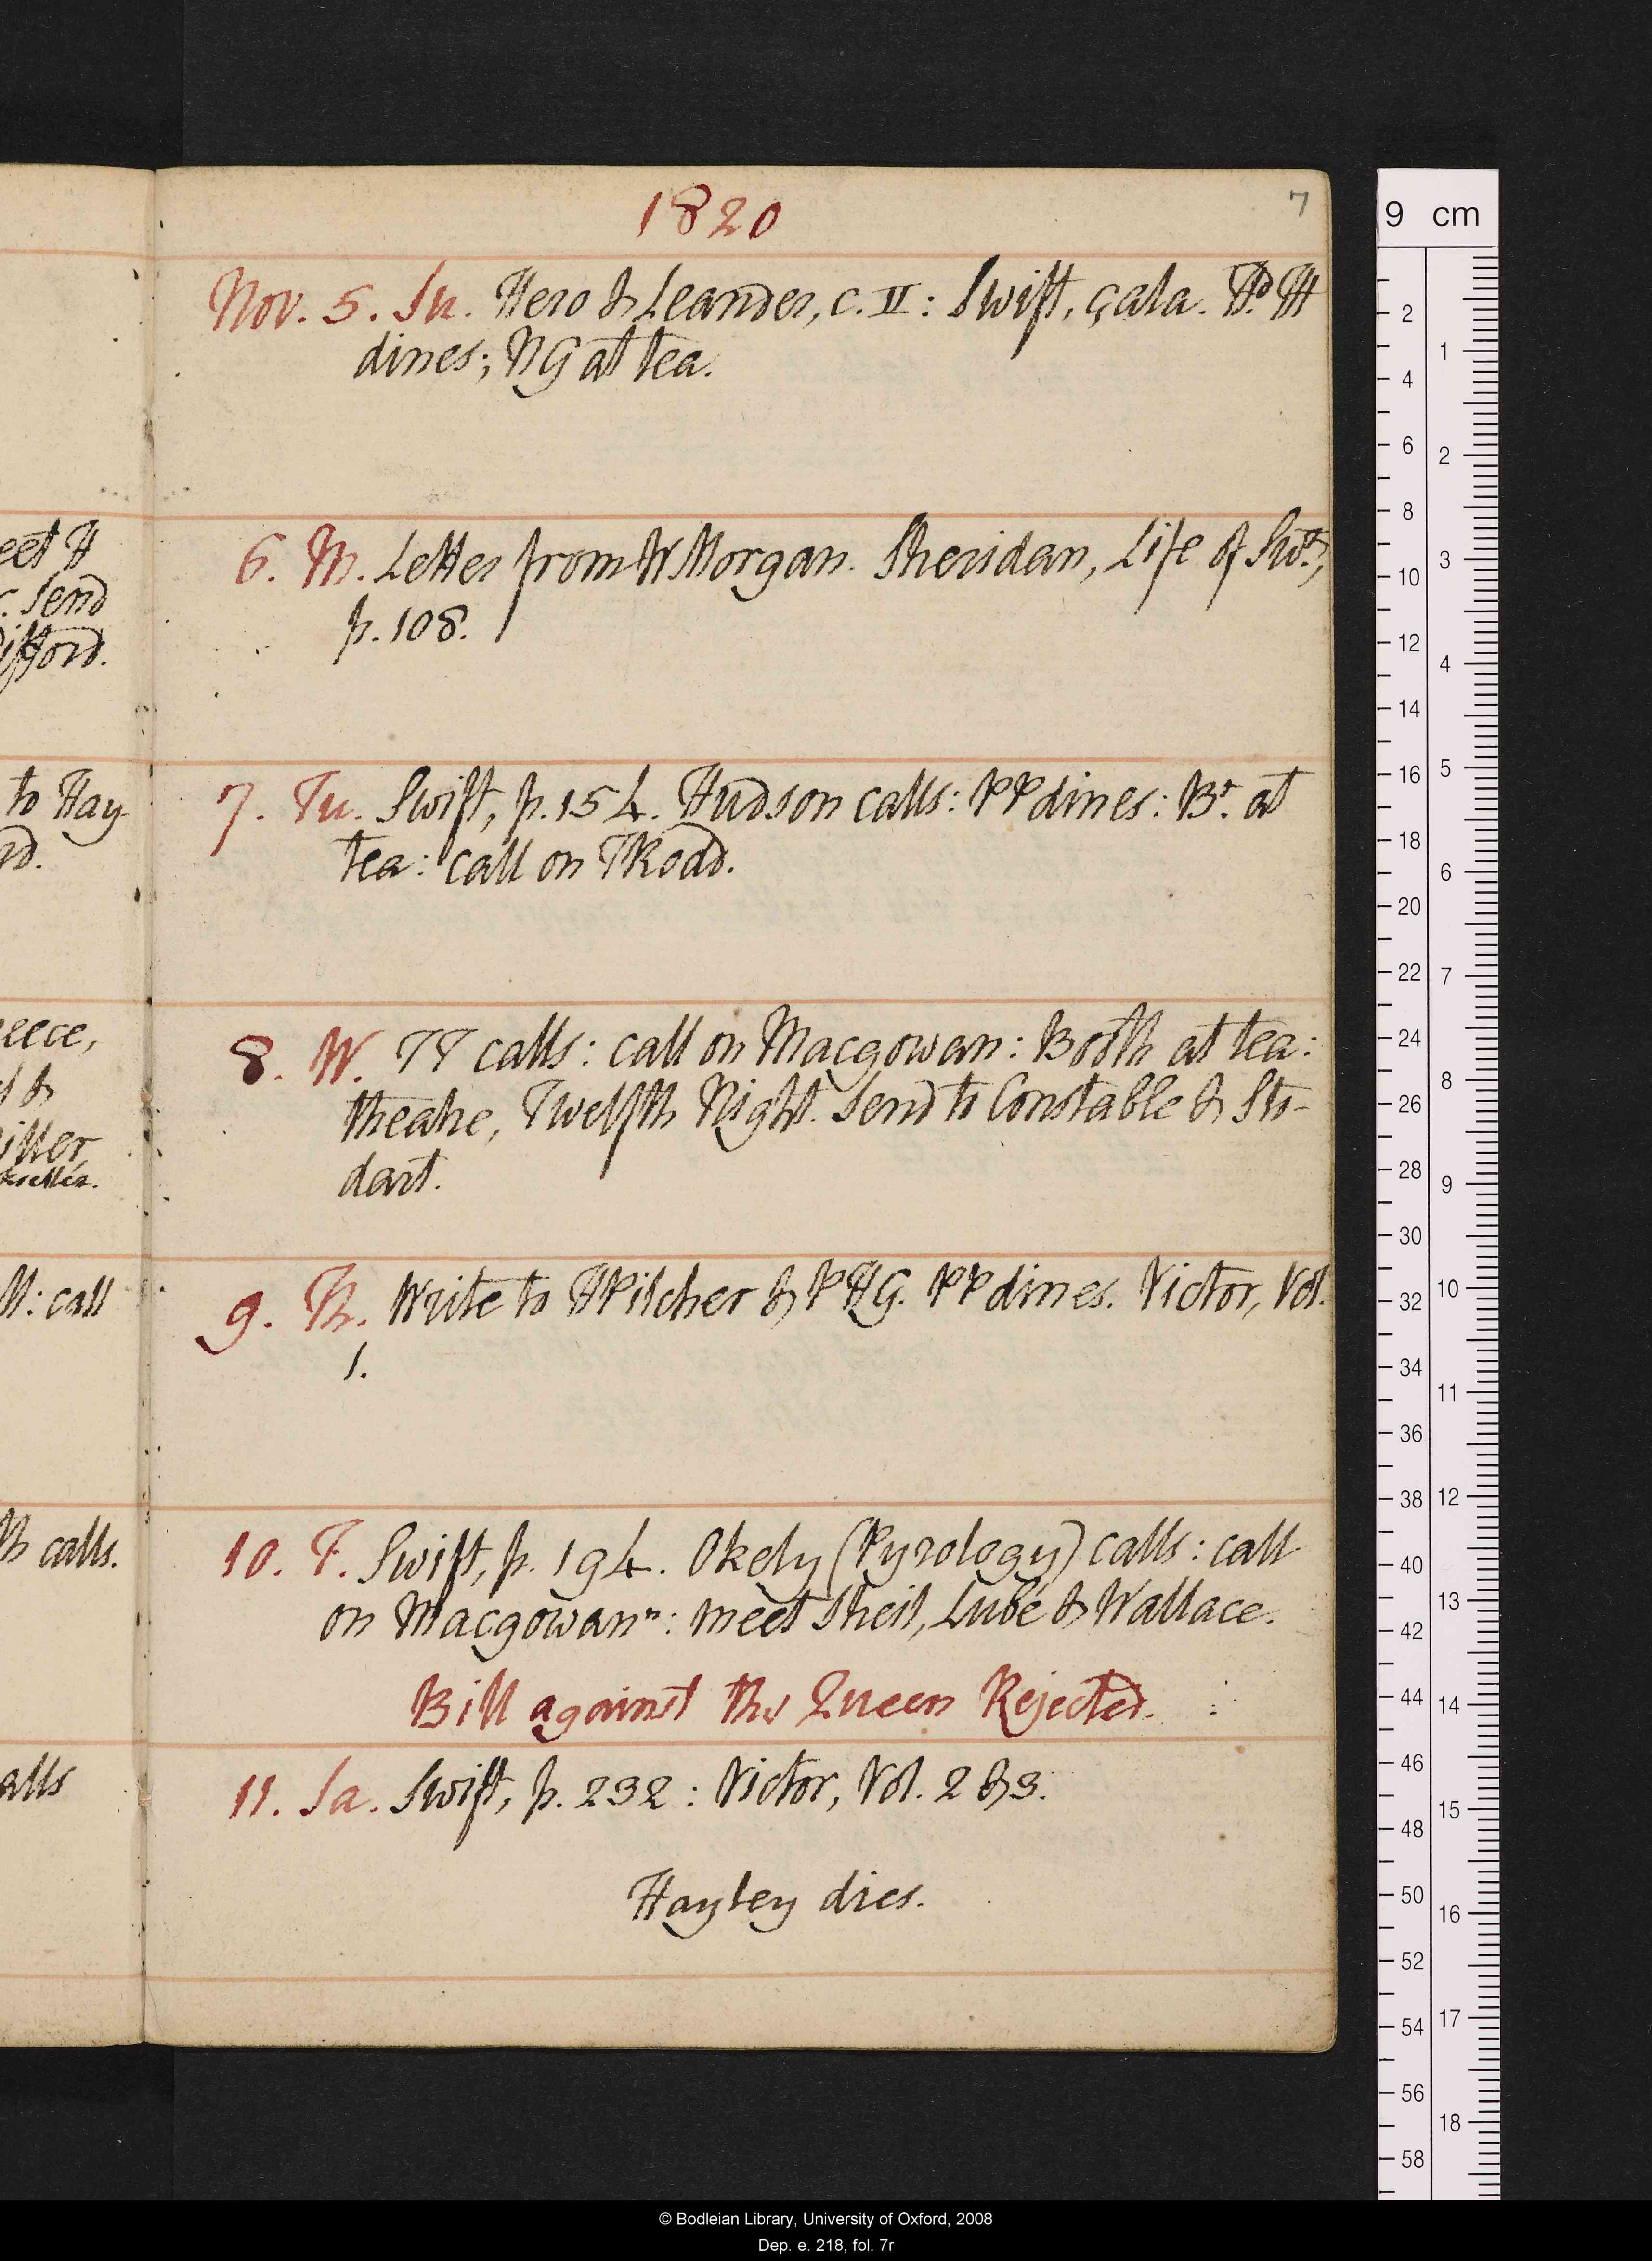 1820
7
Nov. 5. Su. Hero & Leander, c. II: Swift, çala. Hd. H
dines; NG at tea.
6. M. Letter from W Morgan. Sheridan, Life of Swt,
p. 108.
7. Tu. Swift, p. 154. Hudson calls: PP dines: Br. at
tea: call on TRodd.
8. W. TT calls: call on Macgowan: Booth at tea:
theatre, Twelfth Night. Send to Constable & Sto-
dart.
9. Th. Write to HPilcher & PHG. PP dines. Victor, Vol.
1.
10. F. Swift, p. 194. Okely (Pyrology) calls: call
on Macgowan n: meet Sheil, Lubé & Wallace.
Bill against the Queen Rejected.
11. Sa. Swift, p. 232: Victor, Vol. 2 & 3.
Hayley dies.
eet H
Send
ifford.
to Hay-
rd.
eece,
&
M: call
calls.
alls
9 cm
2
4
6
8
10
12
14
16
18
20
22
24
26
28
30
32
34
36
38
40
42
44
46
48
50
52
54
56
58
1
2
3
4
5
6
7
8
9
10
11
12
13
14
15
16
17
18
© Bodleian Library, University of Oxford, 2008
Dep. e. 218, fol. 7r